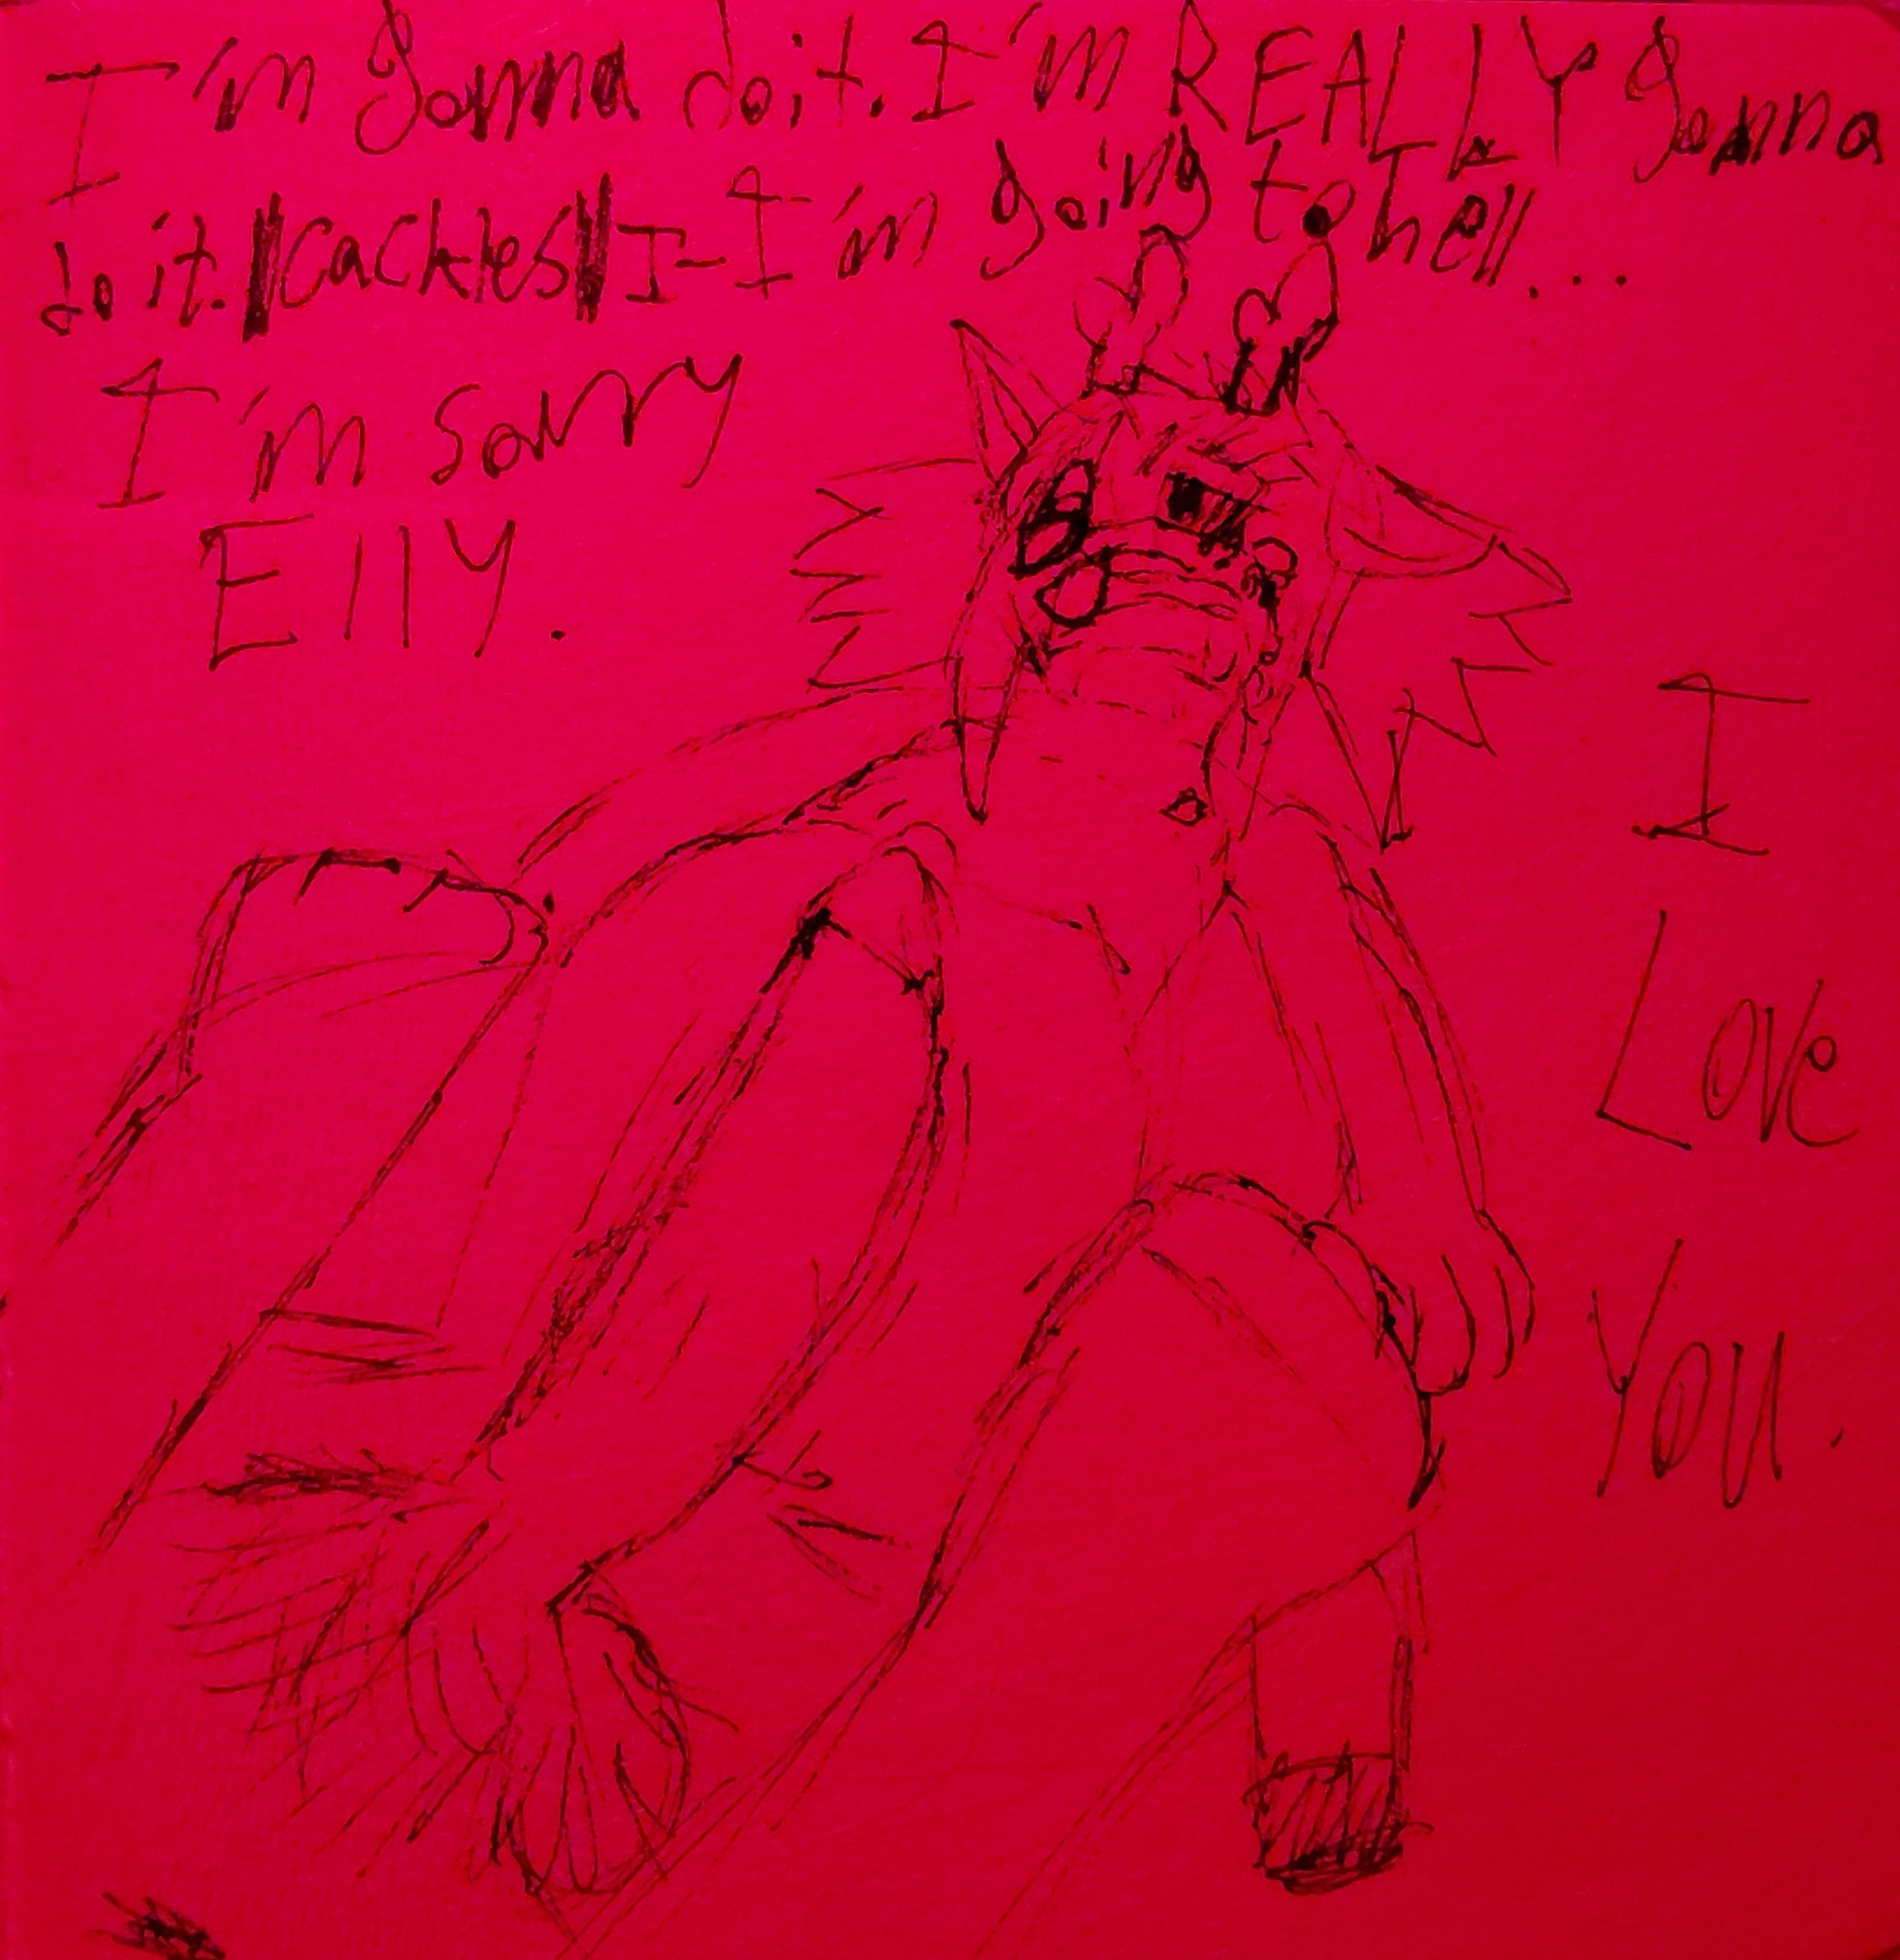 I'm gonna do it. I'm REALLY gonna
do it. ||cackles|| I-I'm going to hell...
I'm sorry
Elly.
I
Love
You.